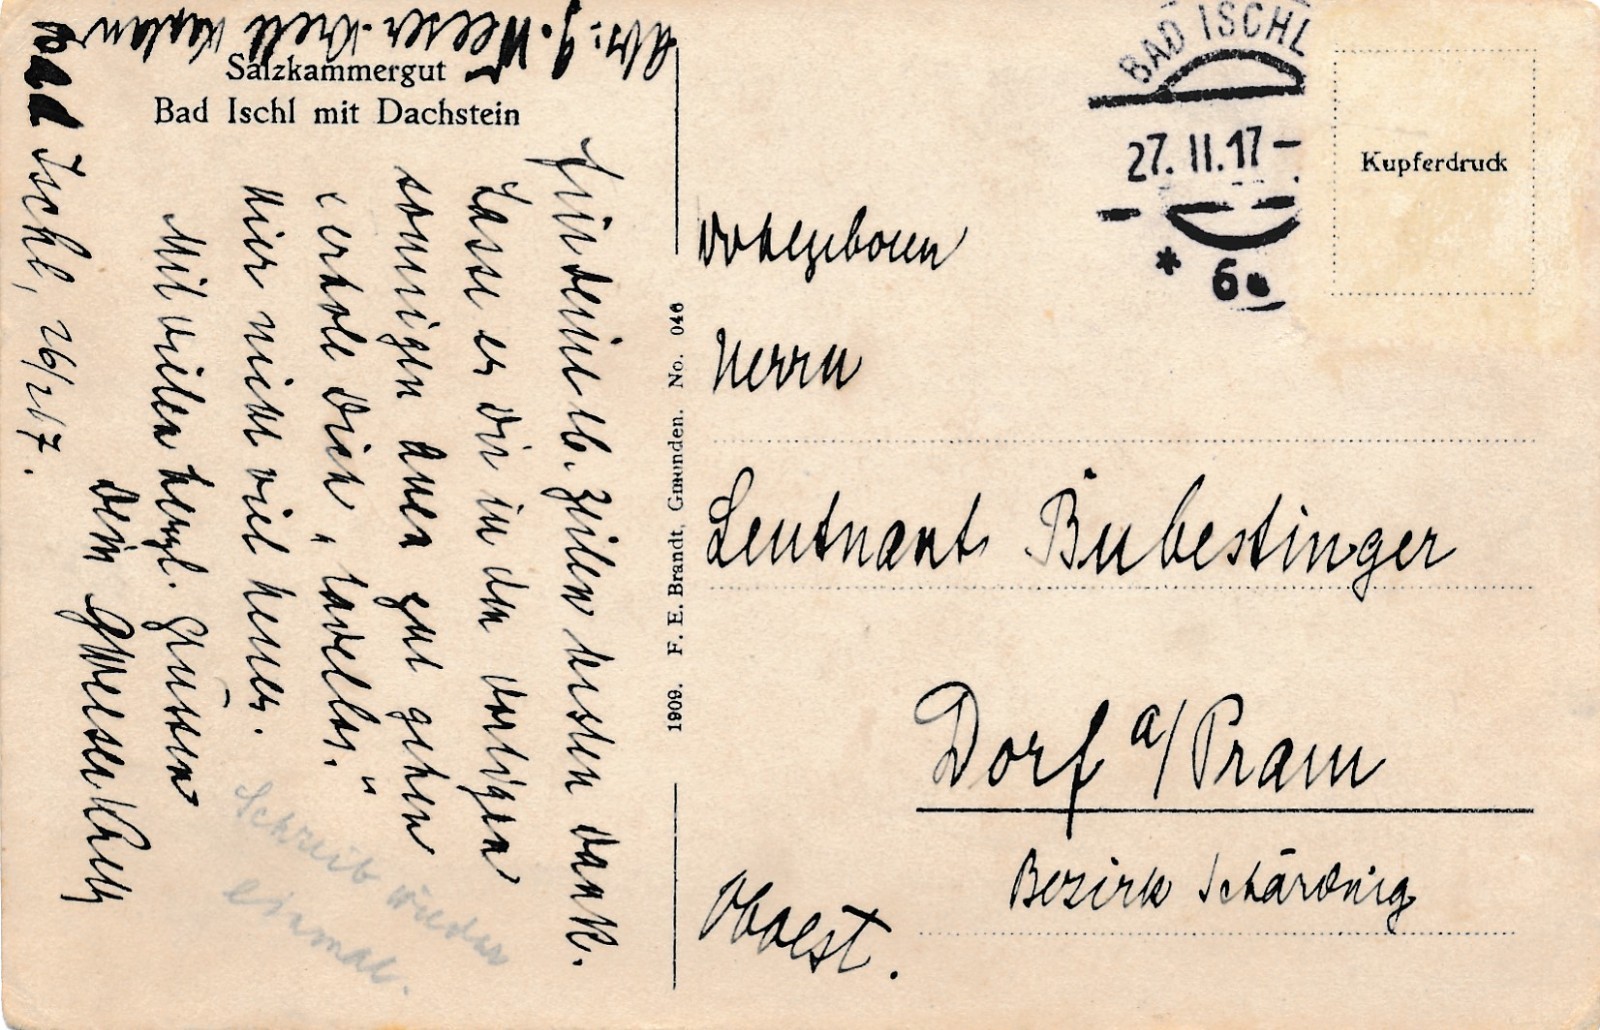 Salzkammergut
Bad Ischl mit Dachstein
Bad Ischl, 26/2 17.
Für deine lb. Zeilen besten Dank.
Lasse es dir in den dortigen
sonnigen gut gehen
erhole Dich „tadellos."
Hier nicht viel neues.
Mit vielen herzl. Grüssen
Dein
Schreib wieder
einmal.
1909. F. E. Brandt, Gmunden. No. 046
BAD ISCHL
27. II. 17 –
* 6a
Kupferdruck
Wohlgeboren
Herrn
Leutnant Bubestinger
Dorf a/Pram
Bezirk Schärding
Oboest.